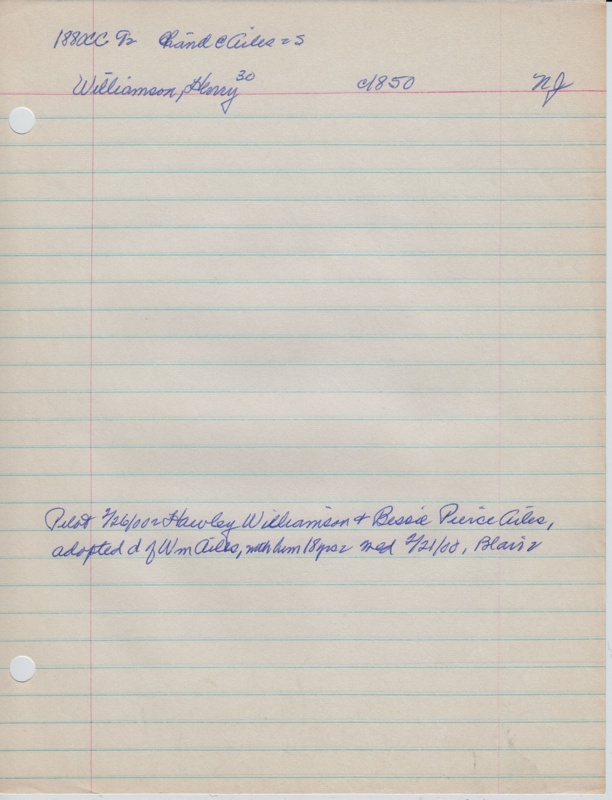 1880CC Chand C Ailes = S
Williamson, Henry 30 c1850 NJ
Pilot 2/26/00 = Hawley Williamson + Bessie Pierce Ailes,
adopted d of Wm Ailes, with him 18 yrs = med 2/21/00, Blair =